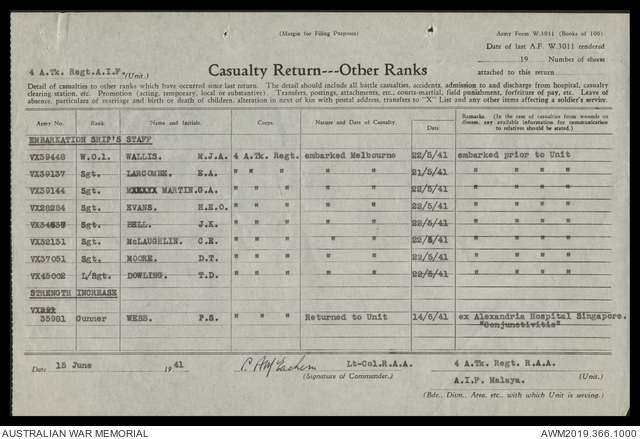 (Margin for Filing Purposes)
Army Form W.3011 (Books of 100).
Date of last A.F. W.3011 rendered
19 Number of sheets
attached to this return
4 A.Tk. Regt.A.I.F. (Unit.)
Casualty Return---Other Ranks
Detail of casualties to other ranks which have occurred since last return. The detail should include all battle casualties, accidents, admission to and discharge from hospital, casualty
clearing station, etc. Promotion (acting, temporary, local or substantive) Transfers, postings, attachments, etc., courts-martial, field punishment, forfeiture of pay, etc. Leave of
absence, particulars of marriage and birth or death of children, alteration in next of kin with postal address, transfers to "X" List and any other items affecting a soldier's service.
Army No. Rank. Name and Initials. Corps. Nature and Date of Casualty. Date. Remarks. (In the case of casualties from wounds or disease, any available information for communication to relatives should be stated.)
EMBARKATION SHIP'S STAFF
VX39448 W.O.1. WALLIS. M.J.A. 4 A.Tk. Regt. embarked Melbourne 22/5/41 embarked prior to Unit
VX39137 Sgt. LARCOMBE. E.A. " " " " " 21/5/41 " " " "
VX39144 Sgt. MARTIN.G.A. " " " " " 22/5/41 " " " "
VX28284 Sgt. EVANS. H.E.O. " " " " " 22/5/41 " " " "
Sgt. BELL. J.K. " " " " " 22/5/41 " " " "
VX32131 Sgt. McLAUGHLIN. C.E. " " " " " 22/5/41 " " " "
VX37051 Sgt. MOORE. D.T. " " " " " 22/5/41 " " " "
VX45002 L/Sgt. DOWLING. T.D. " " " " " 22/5/41 " " " "
STRENGTH INCREASE
35981 Gunner WEBB. F.S. " " " Returned to Unit 14/6/41 ex Alexandria Hospital Singapore.
"Conjunctivitis"
Date 15 June 1941 Lt-Col.R.A.A. 4 A.Tk. Regt. R.A.A.
(Signature of Commander.) (Unit.)
A.I.F. Malaya.
(Bde., Divn., Area, etc., with which Unit is serving.)
AUSTRALIAN WAR MEMORIAL AWM2019.366.1000